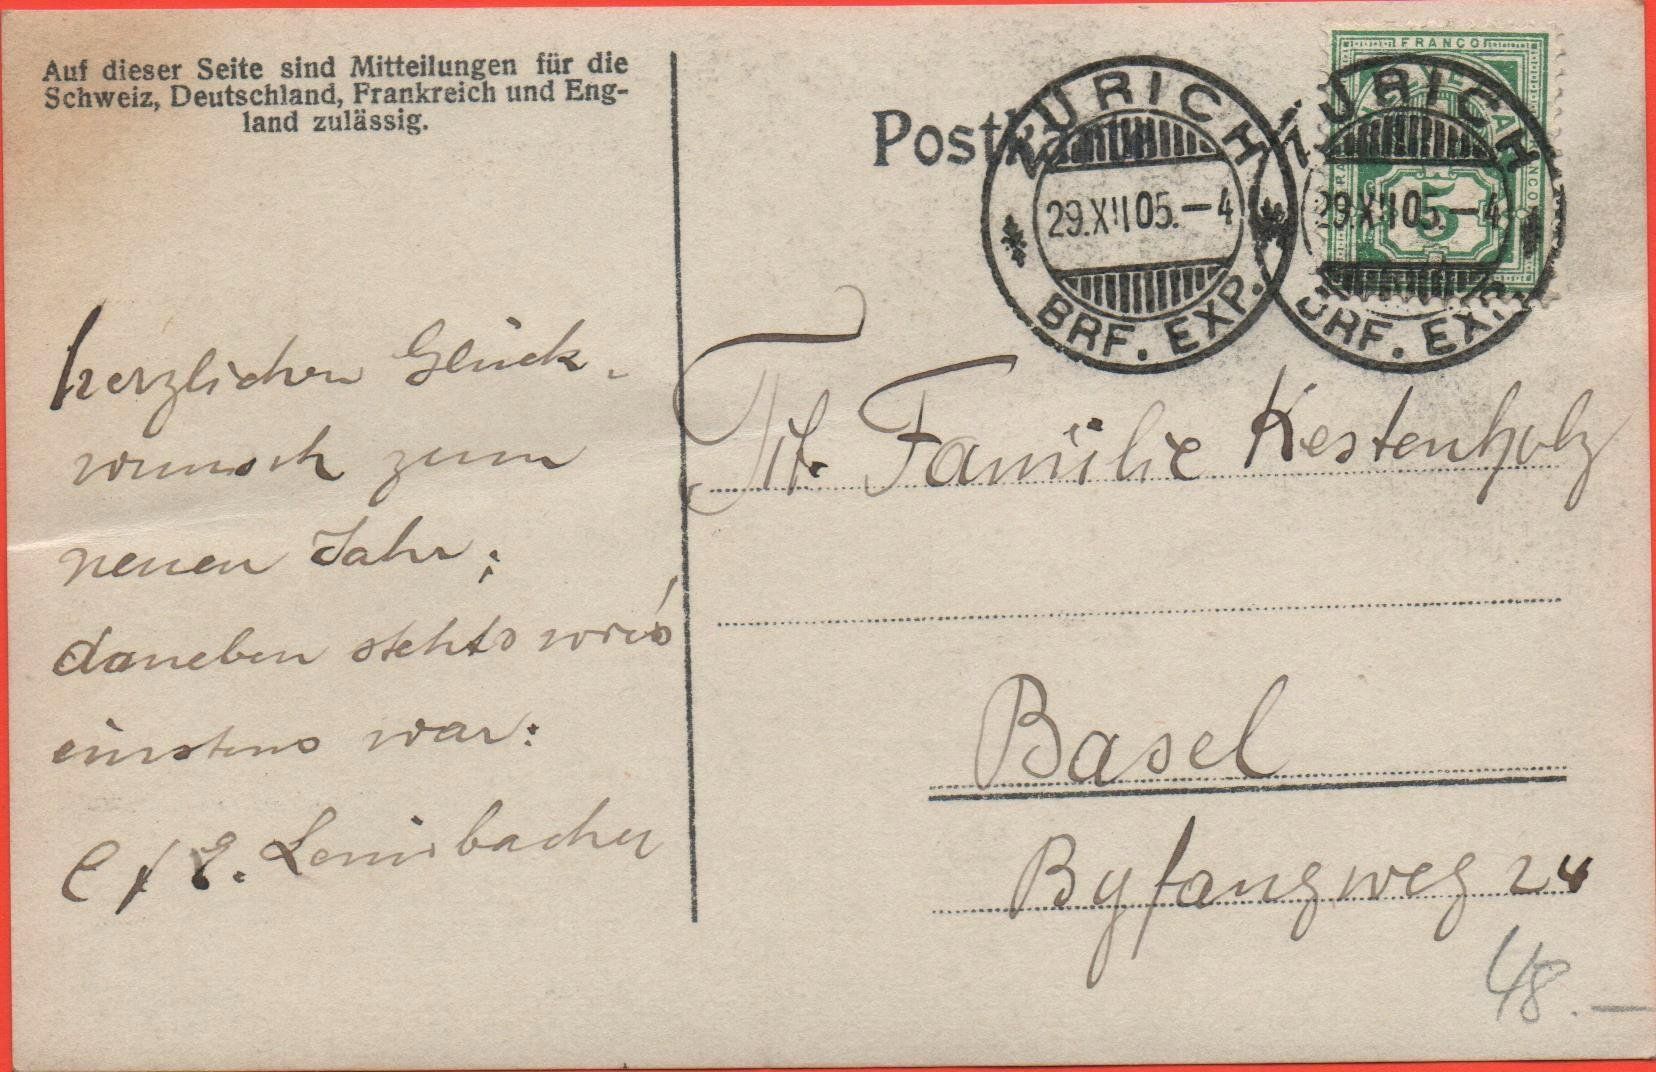 Auf dieser Seite sind Mitteilungen für die
Schweiz, Deutschland, Frankreich und Eng-
land zulässig.
Postkarte
FRANCO
ZÜRICH
29.XII.05.–4
BRF. EXP.
ZÜRICH
29.XII.05.–4
BRF. EXP.
5
herzlichen Glück-
wunsch zum
neuen Jahr;
daneben stehts wie's
einstens war:
Tit. Familie Kestenholz
Basel
Byfangweg 24
48.–